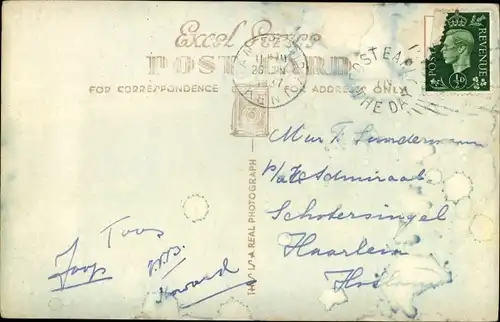 Excel Series
POST CARD
FOR CORRESPONDENCE
FOR ADDRESS ONLY
1937
POST EARLY
IN
THE DAY
POSTAGE
REVENUE
½D
THIS IS A REAL PHOTOGRAPH
F. Sundermann
p/a Admiraal
Schotersingel
Haarlem
Holland
Toos
Joop
Howard